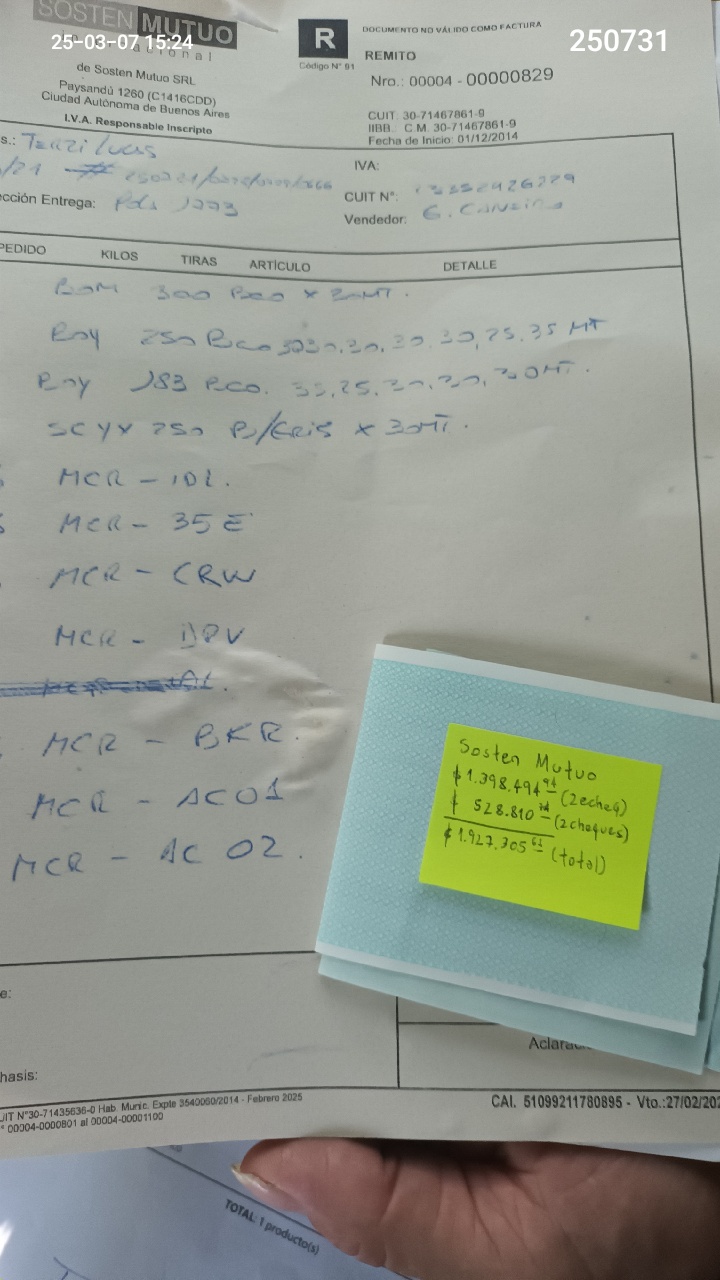 SOSTEN MUTUO
25-03-07 15:24
250731
de Sosten Mutuo SRL
Paysandú 1260 (C1416CDD)
Ciudad Autónoma de Buenos Aires
I.V.A. Responsable Inscripto
R
Código N° 91
DOCUMENTO NO VÁLIDO COMO FACTURA
REMITO
Nro.: 00004 - 00000829
CUIT: 30-71467861-9
IIBB.: C.M. 30-71467861-9
Fecha de Inicio: 01/12/2014
s.: Terzi Lucas
IVA:
CUIT N°:
cción Entrega: Pds 1273
Vendedor: G.
PEDIDO KILOS TIRAS ARTÍCULO DETALLE
300 Bco x 30MT.
Roy 250 Bco 30, 30, 30, 30, 25, 35 MT
Roy 183 Bco. 35, 25, 30, 30, 30MT.
250 B/Cris x 30MT.
MCR - IDL.
MCR - 35E
MCR - CRW
MCR - DPV
MCR - BKR.
MCR - AC01
MCR - AC 02.
Sosten Mutuo
$1.398.494 94 (2echeq)
$ 528.810 (2cheques)
$1.927.305 (total)
e:
Aclara
hasis:
UIT N°30-71435636-0 Hab. Munic. Expte 3540060/2014 - Febrero 2025
° 00004-0000801 al 00004-00001100
CAI. 51099211780895 - Vto.:27/02/202
TOTAL: 1 producto(s)